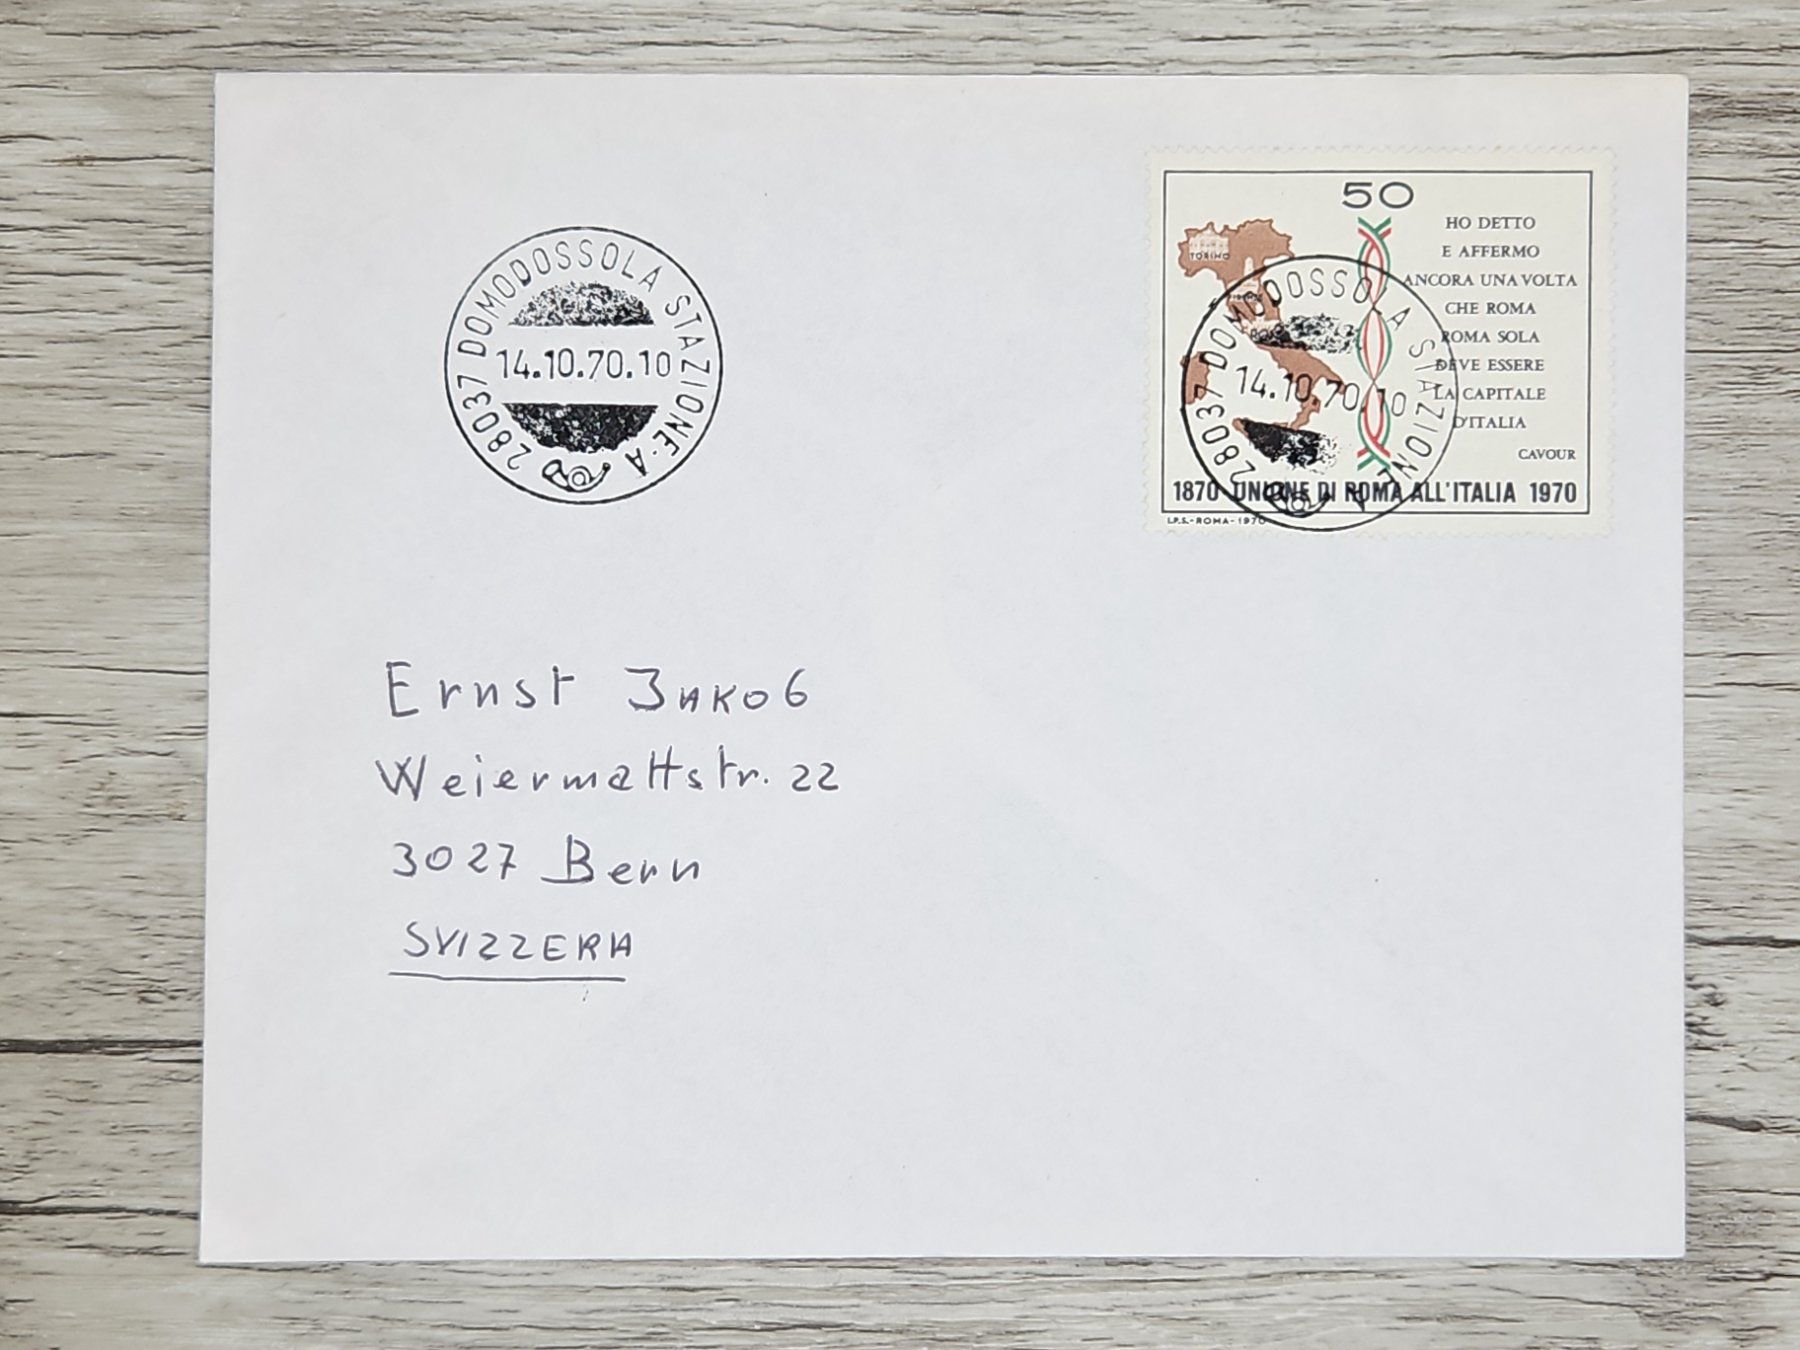 28037 DOMODOSSOLA STAZIONE·A
14.10.70.10
50
HO DETTO
E AFFERMO
ANCORA UNA VOLTA
CHE ROMA
ROMA SOLA
DEVE ESSERE
LA CAPITALE
D'ITALIA
CAVOUR
TORINO
28037 DOMODOSSOLA STAZIONE·A
14.10.70.10
1870 UNIONE DI ROMA ALL'ITALIA 1970
I.P.S.-ROMA-1970
Ernst Jakob
Weiermattstr. 22
3027 Bern
SVIZZERA